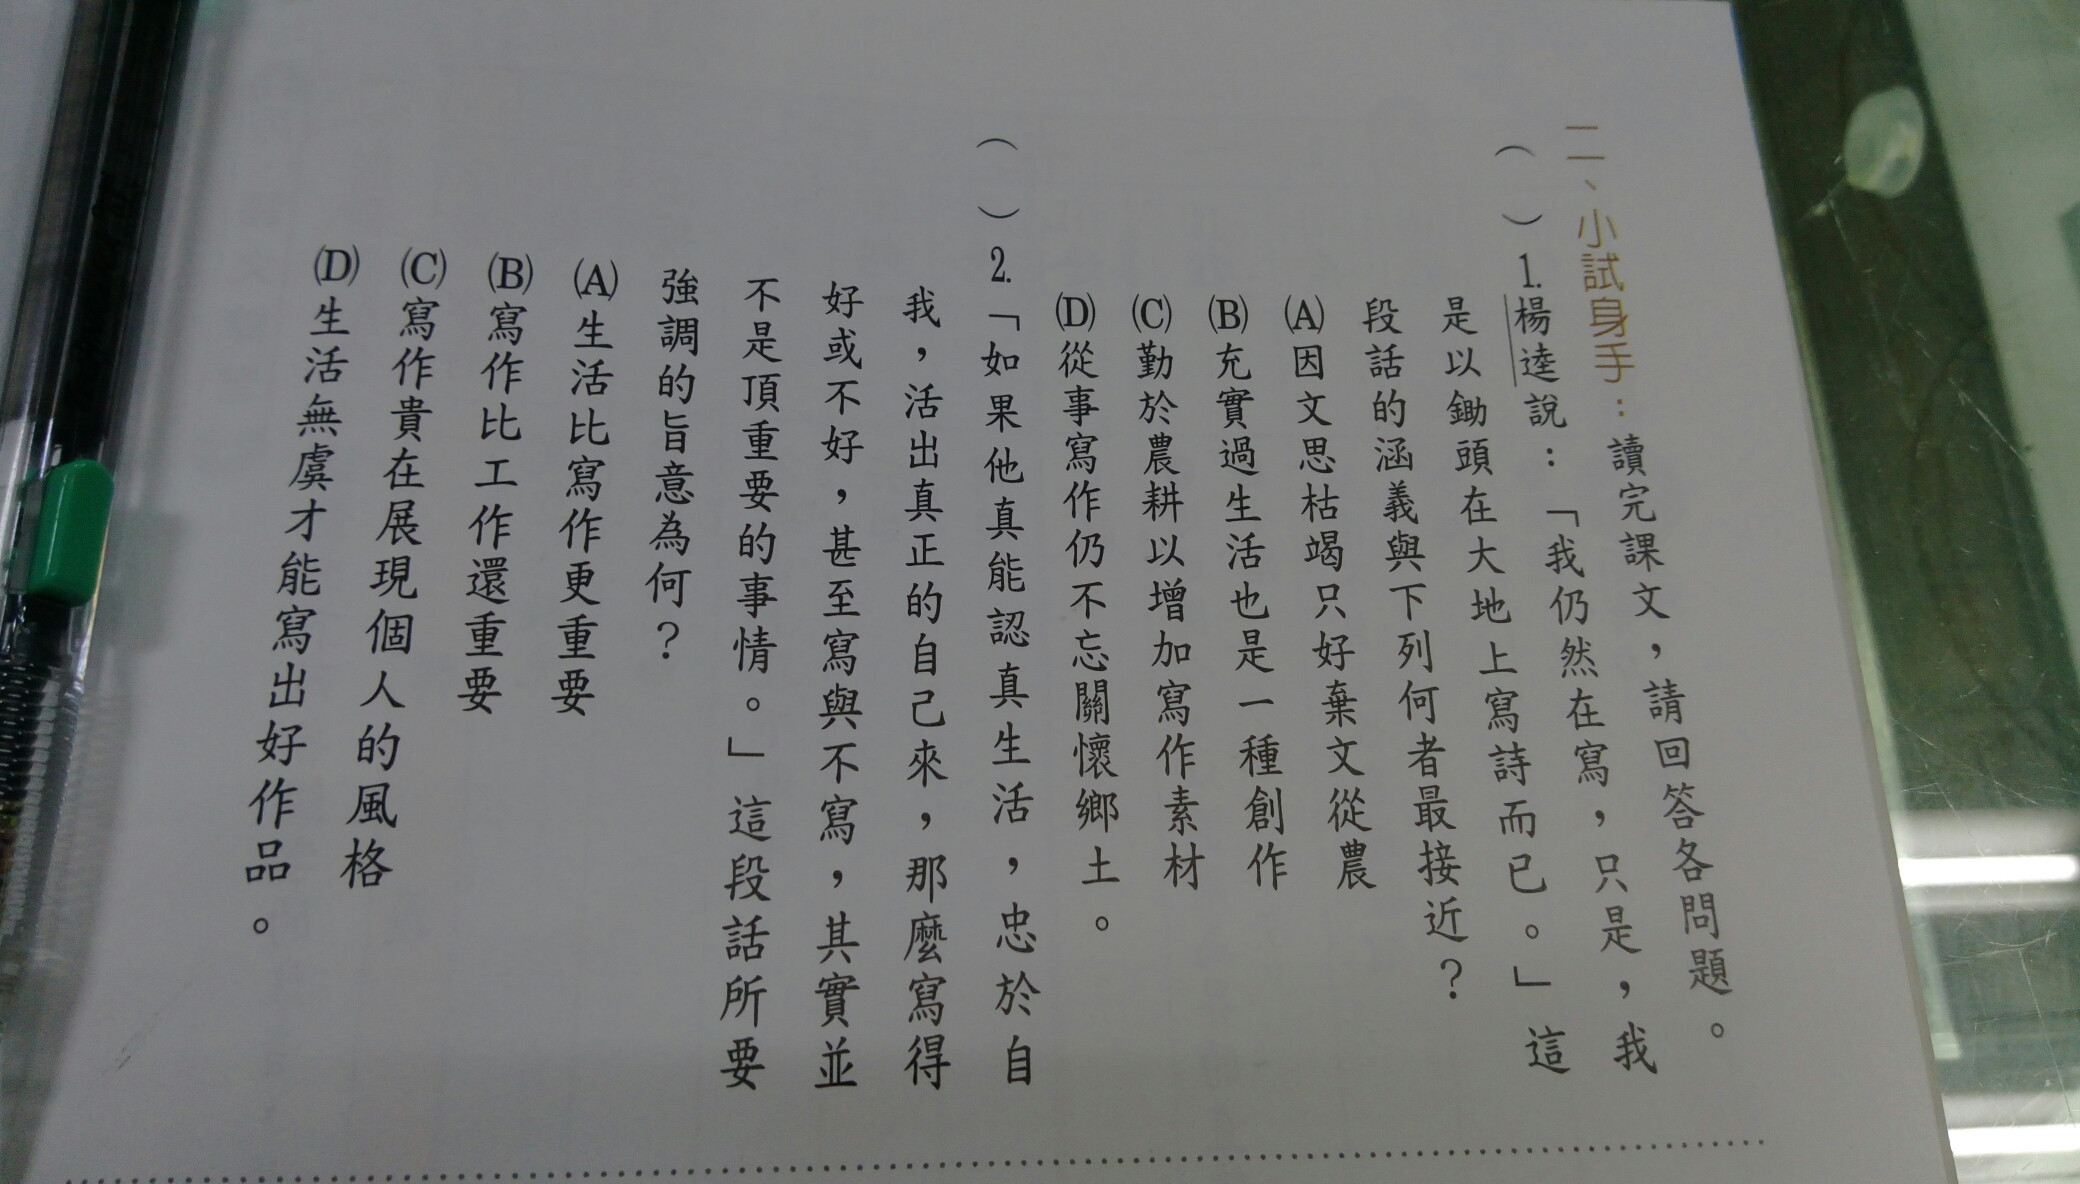 二、小試身手：讀完課文，請回答各問題。
（　）1.楊逵說：「我仍然在寫，只是，我
是以鋤頭在大地上寫詩而已。」這
段話的涵義與下列何者最接近？
(A)因文思枯竭只好棄文從農
(B)充實過生活也是一種創作
(C)勤於農耕以增加寫作素材
(D)從事寫作仍不忘關懷鄉土。
（　）2.「如果他真能認真生活，忠於自
我，活出真正的自己來，那麼寫得
好或不好，甚至寫與不寫，其實並
不是頂重要的事情。」這段話所要
強調的旨意為何？
(A)生活比寫作更重要
(B)寫作比工作還重要
(C)寫作貴在展現個人的風格
(D)生活無虞才能寫出好作品。